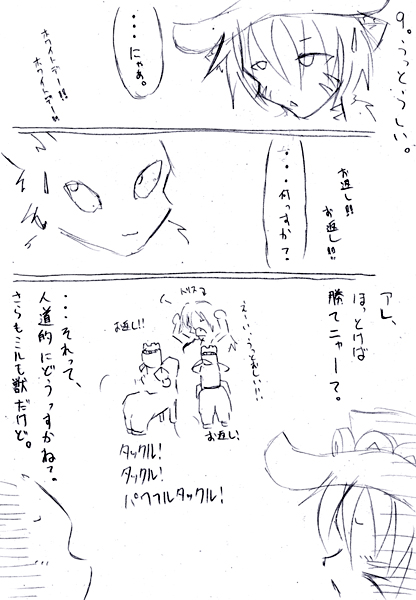 9。うっとうしい。
・・・にゃぁ。
ホワイトデー!!
ホワイトデー!!
お返し!!
お返し!!
・・・何っすか?
アレ、
ほっとけば
勝てニャーて。
え、い、うっとおしい!!
お返し!!
お返し!
タックル!
タックル!
パワフルタックル!
・・・それって、
人道的にどうっすかねぇ。
さらもミルも獣だけど。